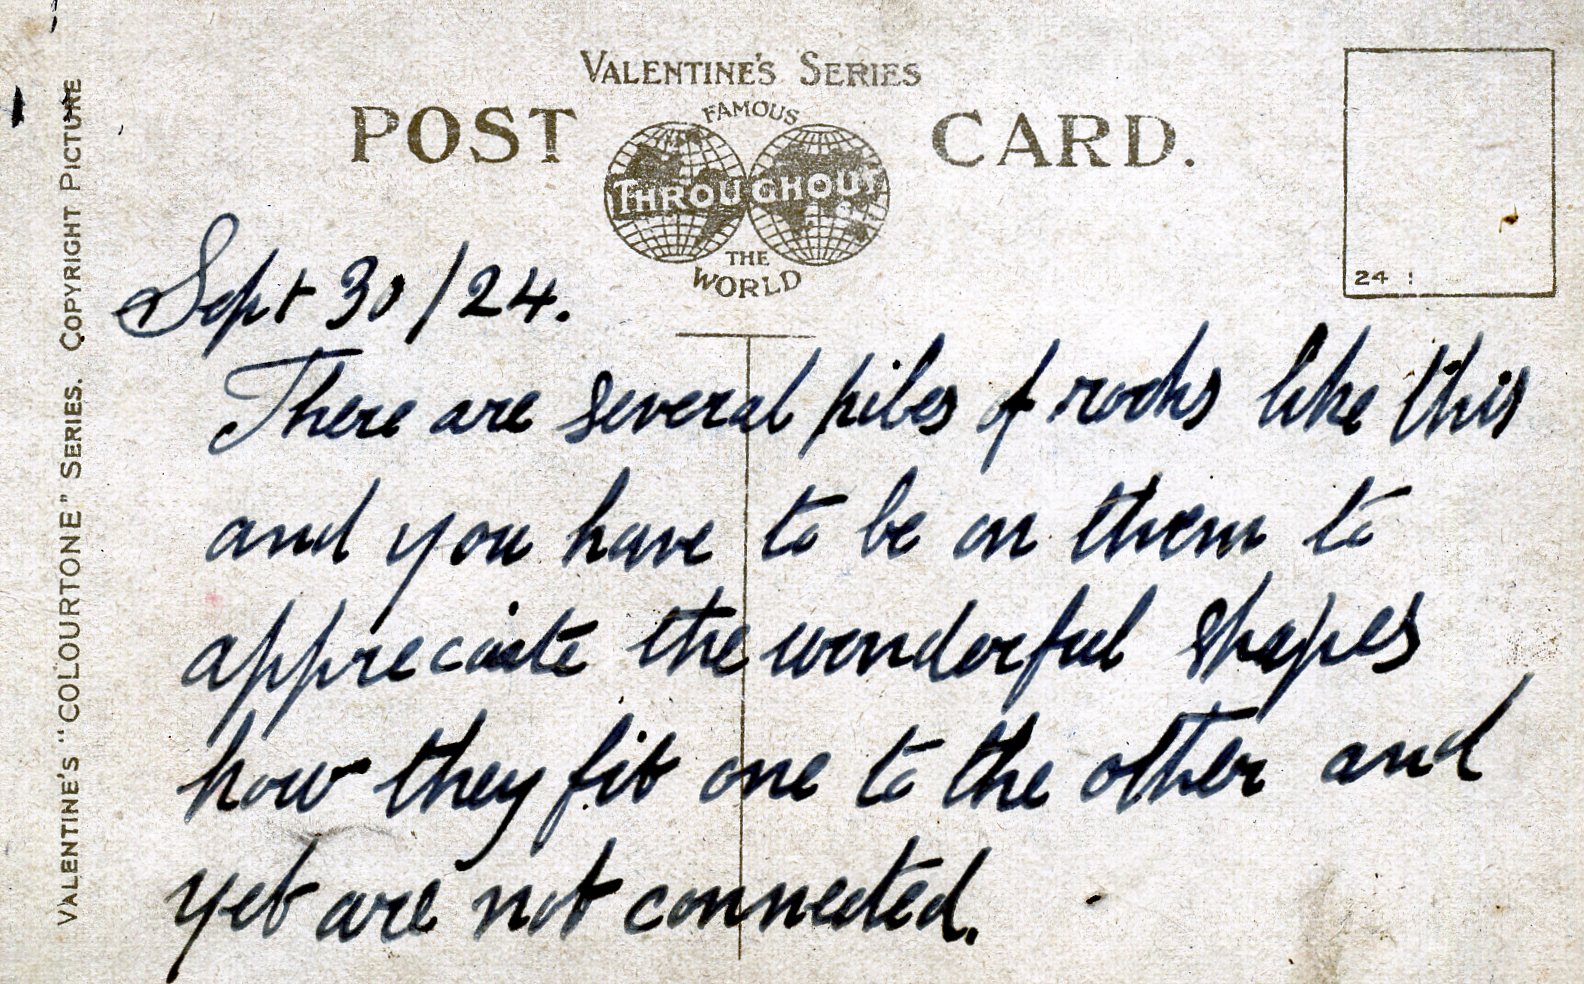 VALENTINE'S SERIES
POST CARD.
FAMOUS
THROUGHOUT
THE
WORLD
24 :
VALENTINE'S "COLOURTONE" SERIES. COPYRIGHT PICTURE
Sept 30/24.
There are several piles of rocks like this
and you have to be on them to
appreciate the wonderful shapes
how they fit one to the other and
yet are not connected.